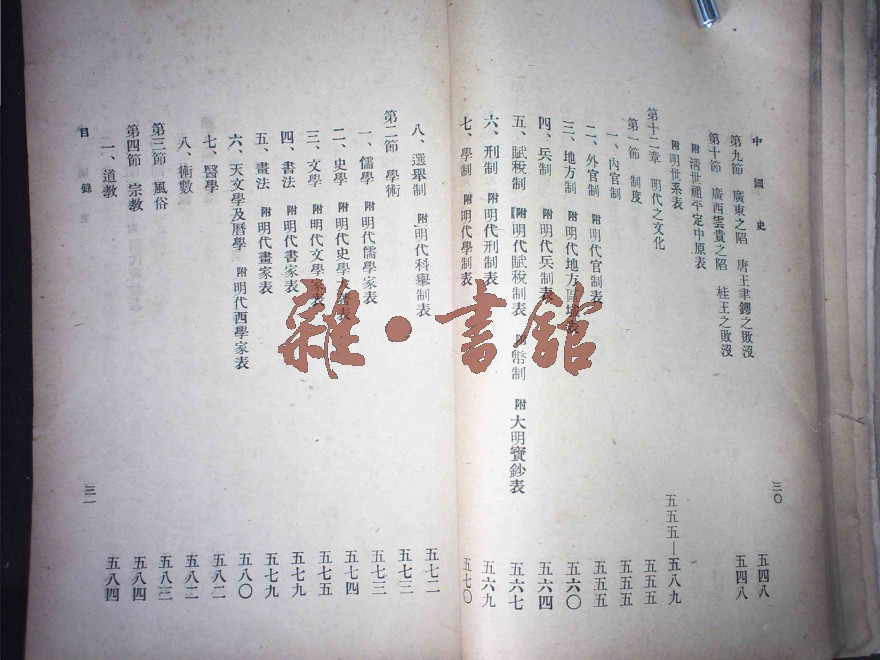 中國史
三〇
第九節 廣東之陷 唐王聿鐭之敗沒 五四八
第十節 廣西雲貴之陷 桂王之敗沒 五四八
附淸世祖平定中原表
附明世系表
第十二章 明代之文化 五五五—五八九
第一節 制度 五五五
一、內官制 五五五
二、外官制 附明代官制表 五五五
三、地方制 附明代地方區域表 五六〇
四、兵制 附明代兵制表 五六四
五、賦稅制 附明代賦稅制表 附幣制 附大明寶鈔表 五六七
六、刑制 附明代刑制表 五六九
七、學制 附明代學制表 五七〇
八、選舉制 附明代科舉制表 五七二
第二節 學術 五七三
一、儒學 附明代儒學家表 五七三
二、史學 附明代史學大諸表 五七四
三、文學 附明代文學家表 五七五
四、書法 附明代書家表 五七九
五、畫法 附明代畫家表 五七九
六、天文學及曆學 附明代西學家表 五八〇
七、醫學 五八二
八、術數 五八二
第三節 風俗 五八三
第四節 宗教 五八四
一、道教 五八四
目錄
三一
雜·書館